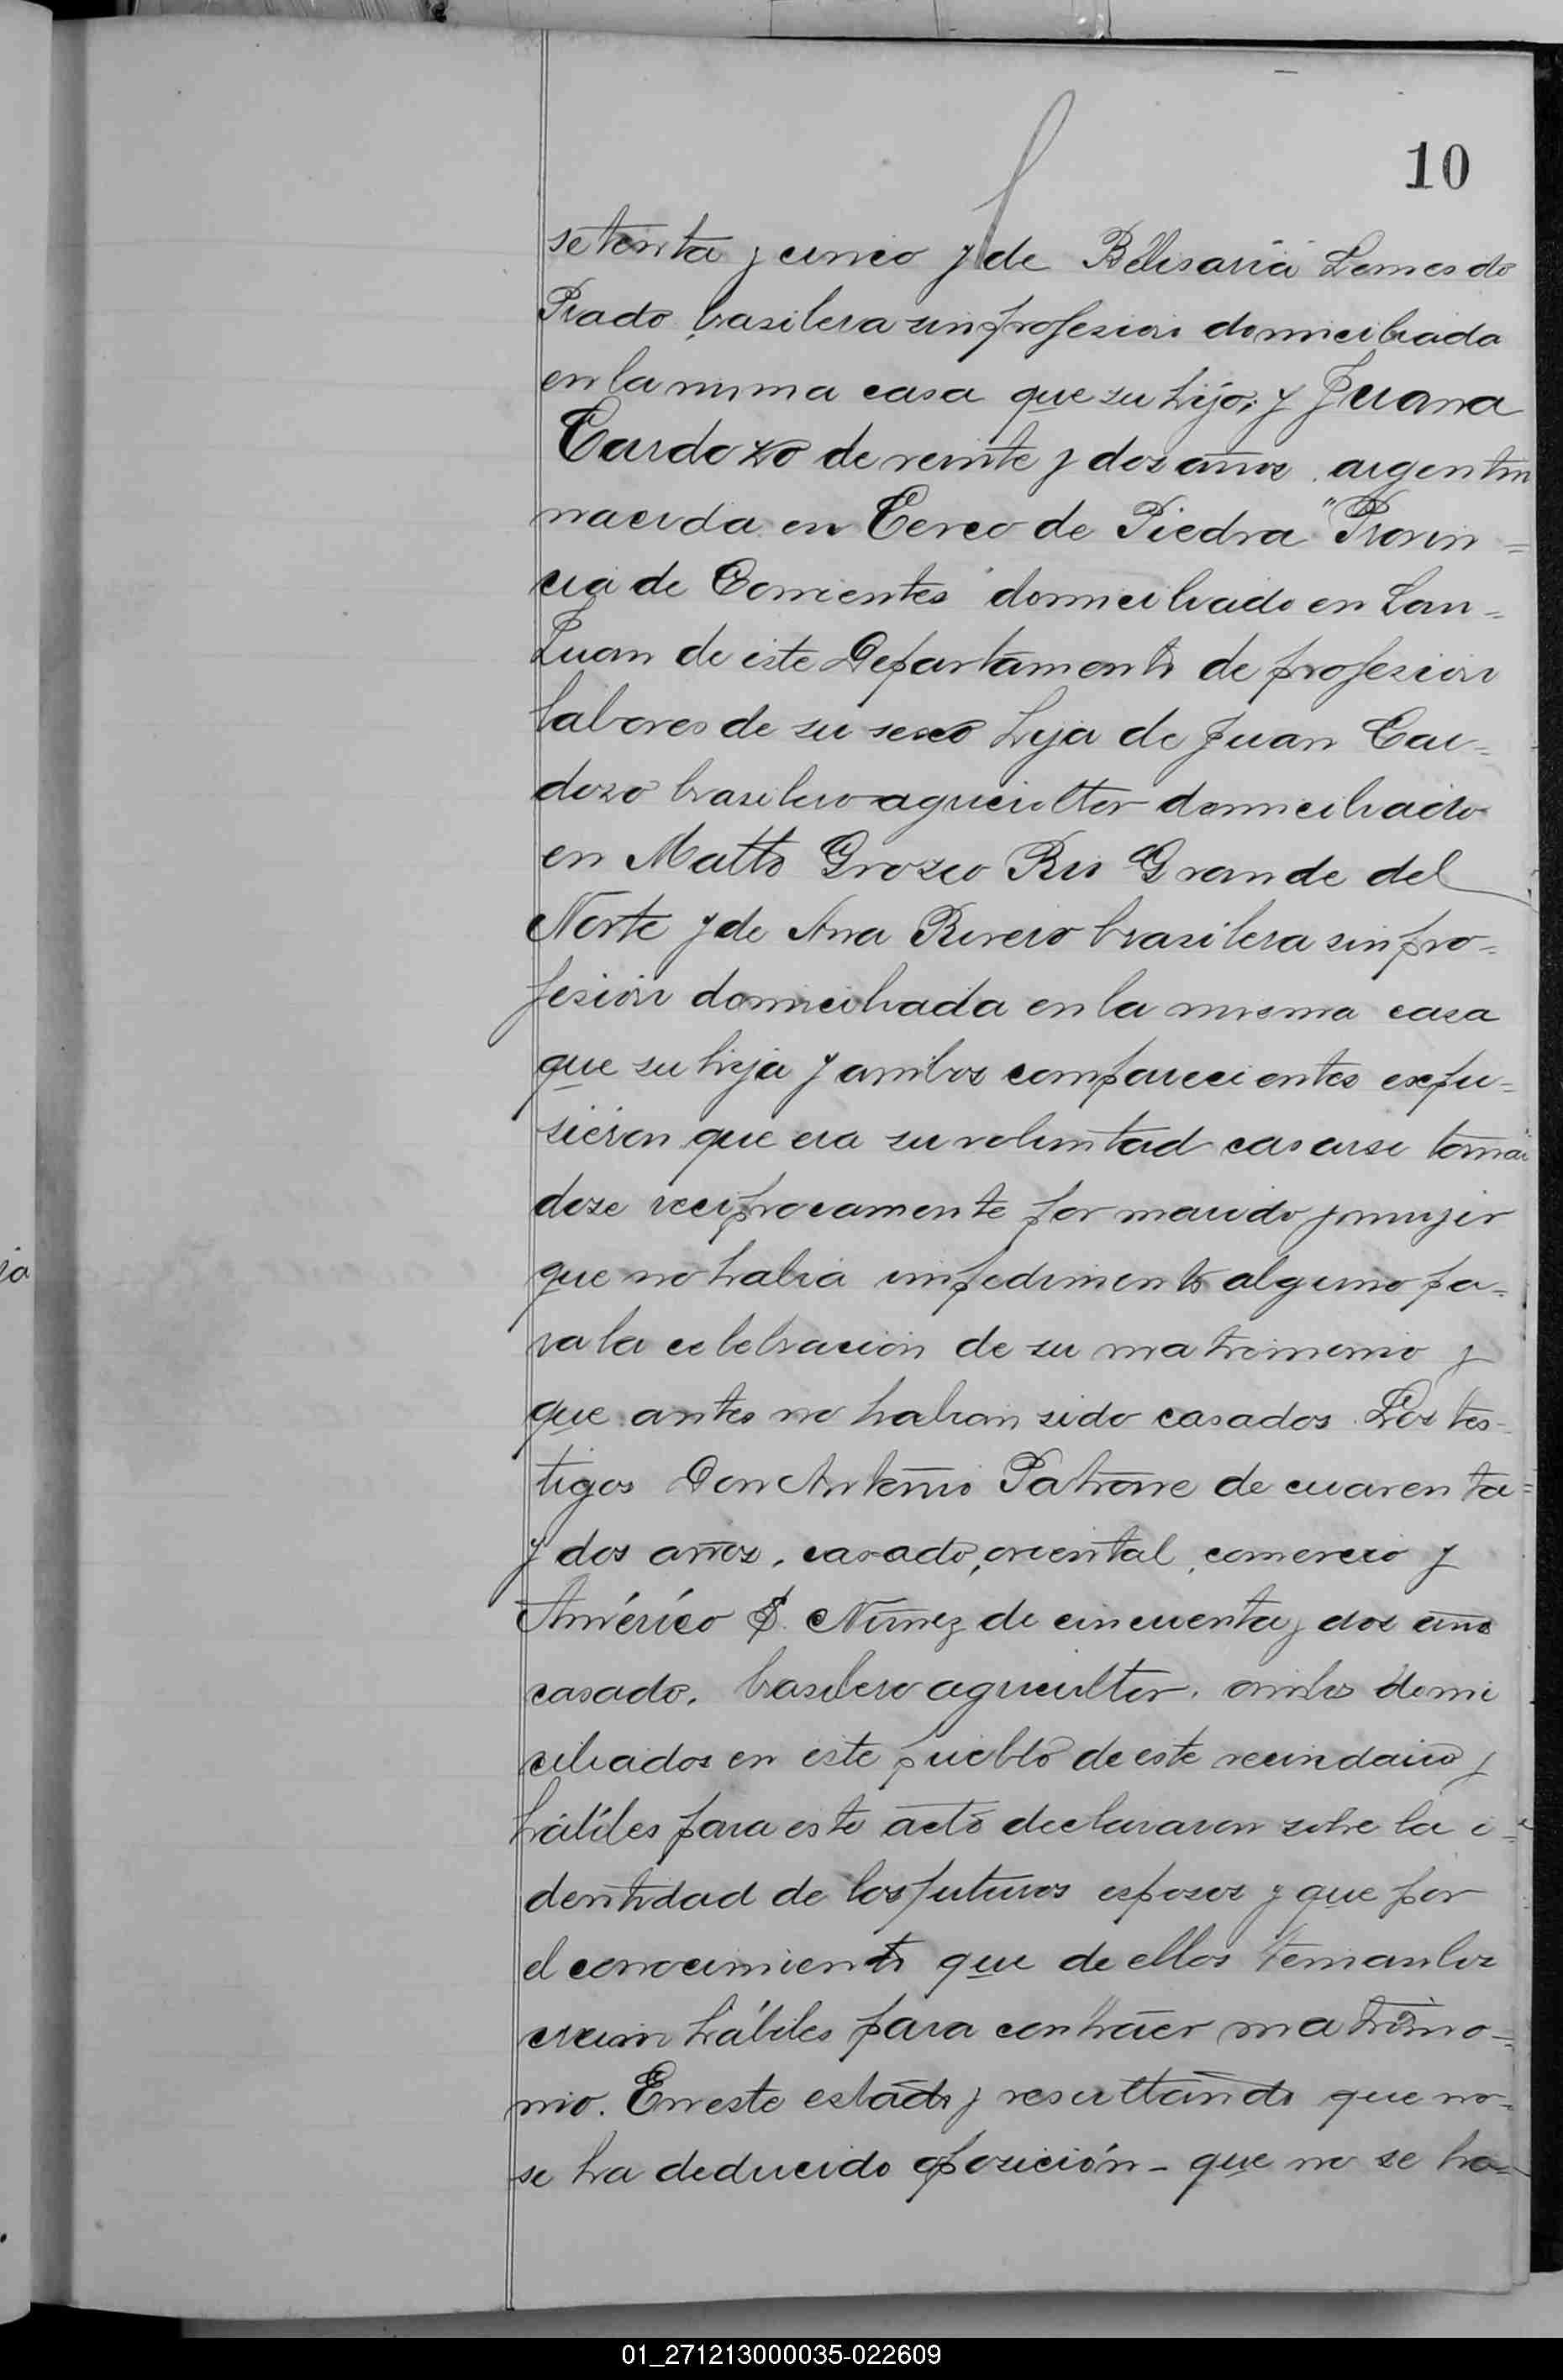 10
setenta y cinco y de Belisaria Lemes do
Prado, brasilera sin profesion domiciliada
en la misma casa que su hijo; y Juana
Cardozo de veinte y dos años, argentin
nacida en Cerco de Piedra "Provin=
cia de Corrientes" domiciliado en San=
Juan de este Departamento de profesion
labores de su sexo hija de Juan Car=
dozo brasilero agricultor domiciliado
en Matto Grozco Rio Grande del
Norte y de Ana Rivero brasilera sin pro=
fesión domiciliada en la misma casa
que su hija y ambos comparecientes expu=
sieron que era su voluntad casarse toman
dose reciprocamente por marido y mujer
que no habia impedimento alguno pa=
ra la celebracion de su matrimonio y
que antes no habian sido casados. Los tes=
tigos Don Antonio Patrone de cuarenta=
y dos años, casado, oriental, comercio y
Américo S. Nuñez de cincuenta y dos años
casado, brasilero agricultor, ambos domi
ciliados en este pueblo de este vecindario y
hábiles para este acto declararon sobre la i=
dentidad de los futuros esposos y que por
el conocimiento que de ellos tenian los
creian hábiles para contraer matrimo=
nio. En este estado y resultando que no=
se ha deducido oposición - que no se ha=
01_271213000035-022609